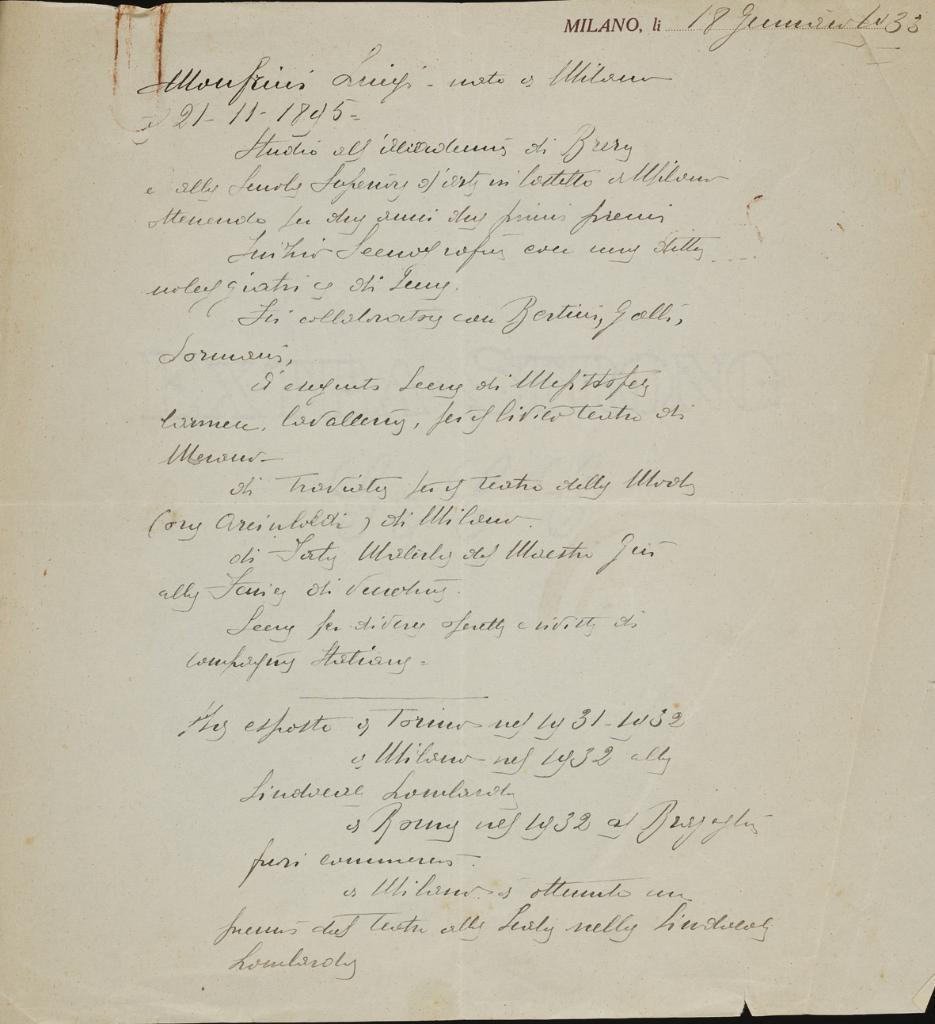 MILANO, li 18 Gennaio 1933
Monfrini Luigi - nato a Milano
il 21-11-1895 -
Studiò all'Accademia di Brera
e alla Scuola Superiore d'arte in Castello a Milano
ottenendo per due anni due primi premi
Iniziò Scenografia con una ditta
noleggiatrice di Scene.
Fu collaboratore con Bertini, Galli,
Sormani,
à eseguito Scene di Mefistofele
Carmen, Cavalleria, per il Civico teatro di
Merano -
di Traviata per il teatro della Moda
(ora Arcimboldi) di Milano.
di Maestro
alla Fenice di Venezia.
Scene per diverse operette e riviste di
compagnie Italiane -
Ha esposto a Torino nel 1931-1932
a Milano nel 1932 alla
Sindacale Lombarda
a Roma nel 1932 al Bragaglia
fuori commercio.
a Milano à ottenuto un
premio dal teatro alla Scala nella Sindacale
Lombarda